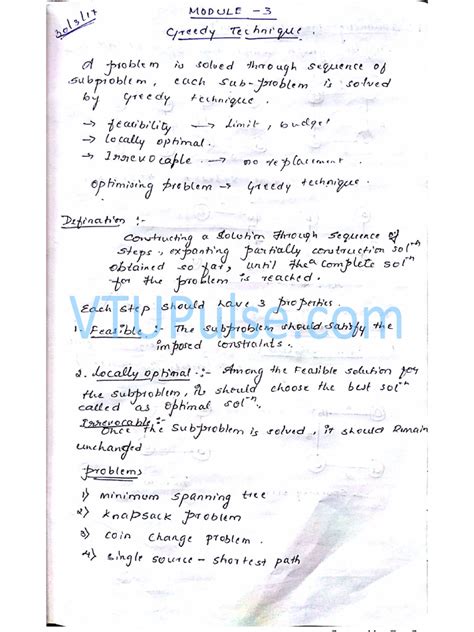 30/3/17
MODULE - 3
Greedy Technique.
A problem is solved through sequence of
subproblem, each sub-problem is solved
by Greedy technique.
→ feasibility → Limit, budget
→ locally optimal.
→ Irrevocable. → no replacement.
Optimising problem → Greedy technique.
Defination :-
Constructing a solution through sequence of
steps, expanting partially construction solⁿ
obtained so far, until the a complete solⁿ
for the problem is reached.
VTUPulse.com
Each step should have 3 properties.
1. Feasible :- The subproblem should satisfy the
imposed constraints.
2. locally optimal :- Among the Feasible solution for
the subproblem, it should choose the best solⁿ
called as optimal solⁿ.
Irrevocable :-
Once the Subproblem is solved, it should remain
unchanged
problems
1) minimum spanning tree
2) knapsack problem
3) coin change problem.
4) single source - shortest path